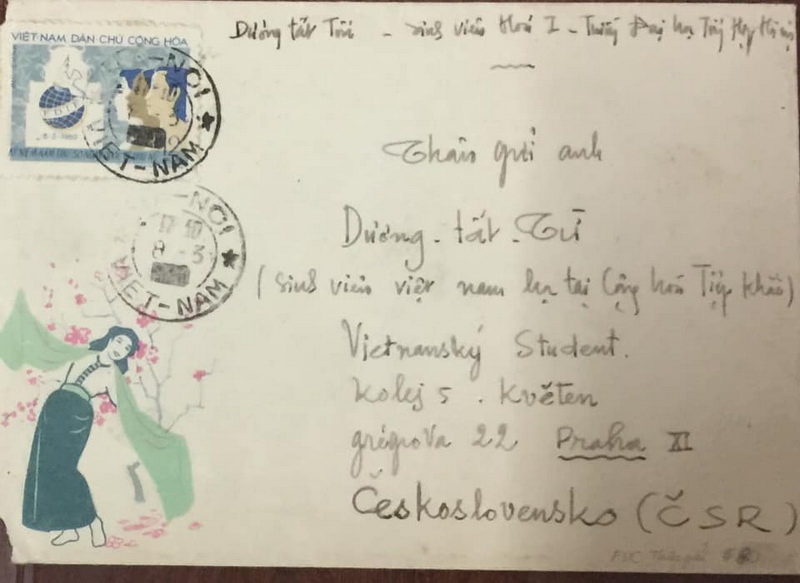 Dương tất Tài - sinh viên Hoá I - Trường Đại học Tổng Hợp Hà nội
VIỆT-NAM DÂN CHỦ CỘNG HÒA
FDIF
8-3-1960
HA-NOI
VIET-NAM
Thân gửi anh
Dương - tất - Từ
HA-NOI
17-10
8-3
VIET-NAM
(sinh viên việt nam học tại Cộng hoà Tiệp khắc)
Vietnanský Student.
Kolej 5. Květen
grégrova 22 Praha XI
Československo (ČSR)